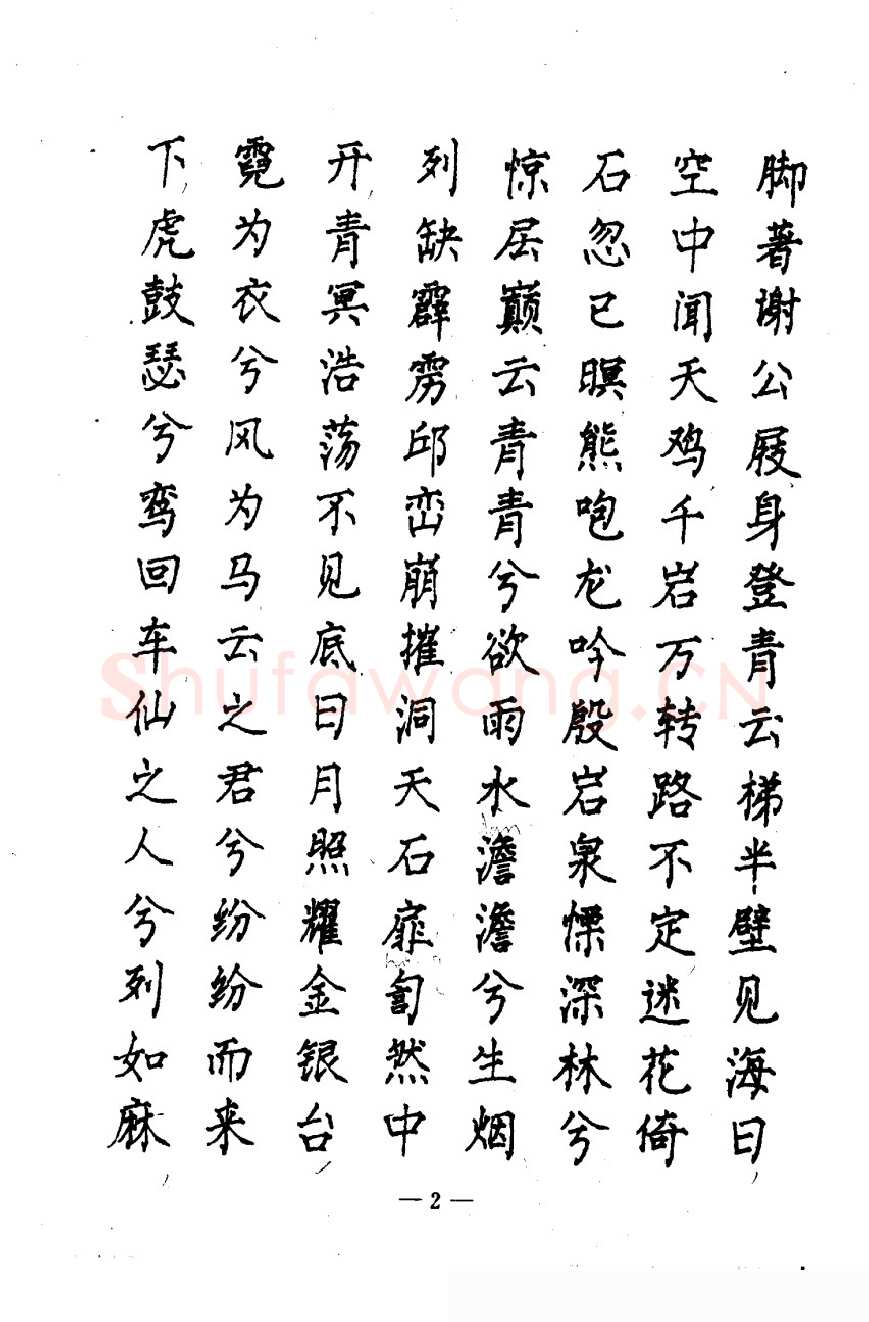 脚著谢公屐身登青云梯半壁见海日
空中闻天鸡千岩万转路不定迷花倚
石忽已暝熊咆龙吟殷岩泉慄深林兮
惊层巅云青青兮欲雨水澹澹兮生烟
列缺霹雳邱峦崩摧洞天石扉訇然中
开青冥浩荡不见底日月照耀金银台
霓为衣兮风为马云之君兮纷纷而来
下虎鼓瑟兮鸾回车仙之人兮列如麻
Shufawang.CN
— 2 —